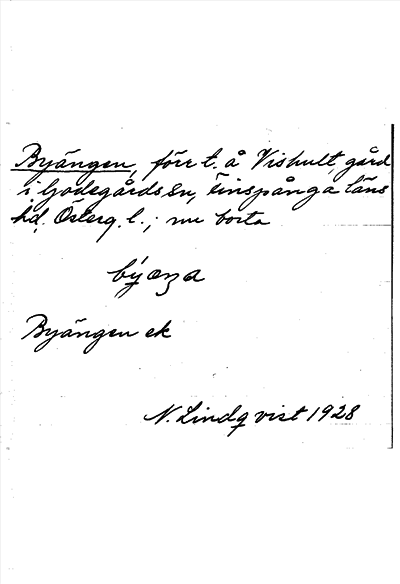 Byängen, förr t. å Vishult, gård
i Godegårds sn, Finspånga läns
hd. Österg. l.; nu borta
býæŋa
Byängen ek
N. Lindqvist 1928